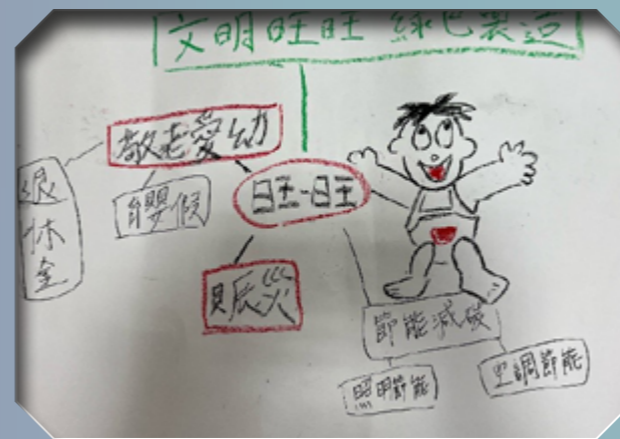 文明旺旺 綠色製造
敬老愛幼
退休金
育嬰假
旺-旺
賑災
節能減碳
照明節能
空調節能